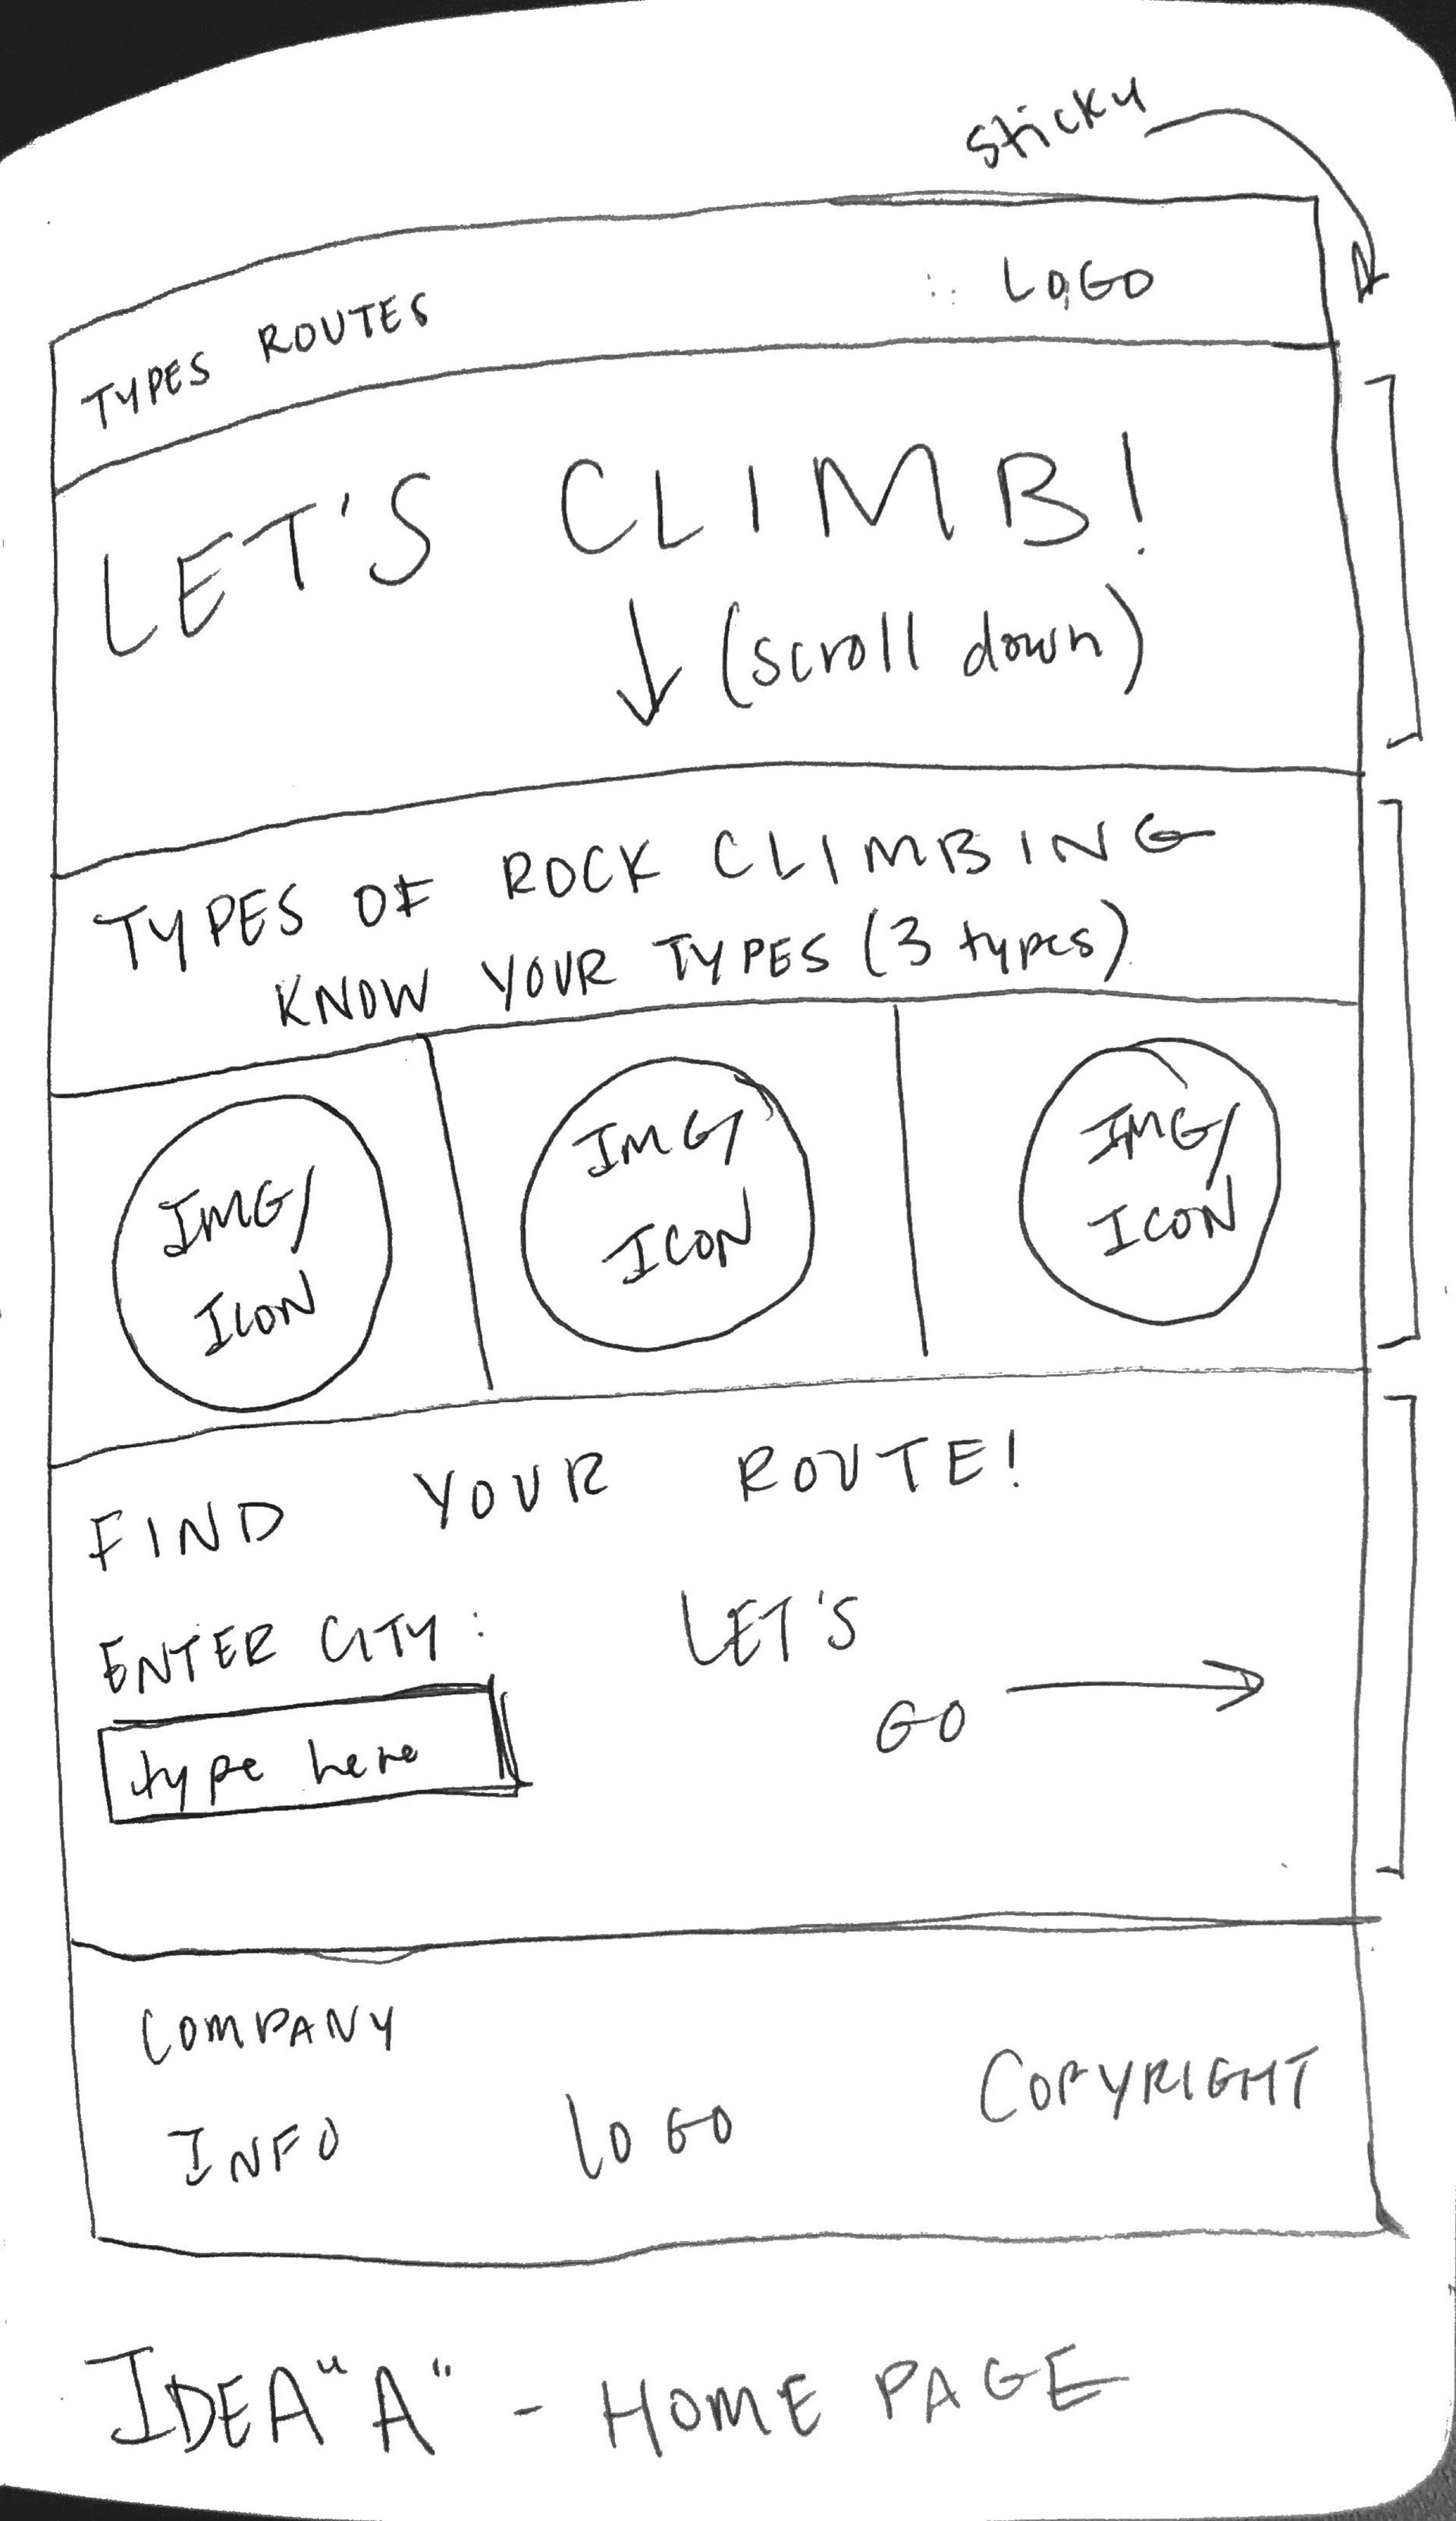 sticky
TYPES ROUTES LOGO
LET'S CLIMB!
(scroll down)
TYPES OF ROCK CLIMBING
KNOW YOUR TYPES (3 types)
IMG/
ICON
IMG/
ICON
IMG/
ICON
FIND YOUR ROUTE!
ENTER CITY:
type here
LET'S
GO
COMPANY
INFO
LOGO
COPYRIGHT
IDEA "A" - HOME PAGE